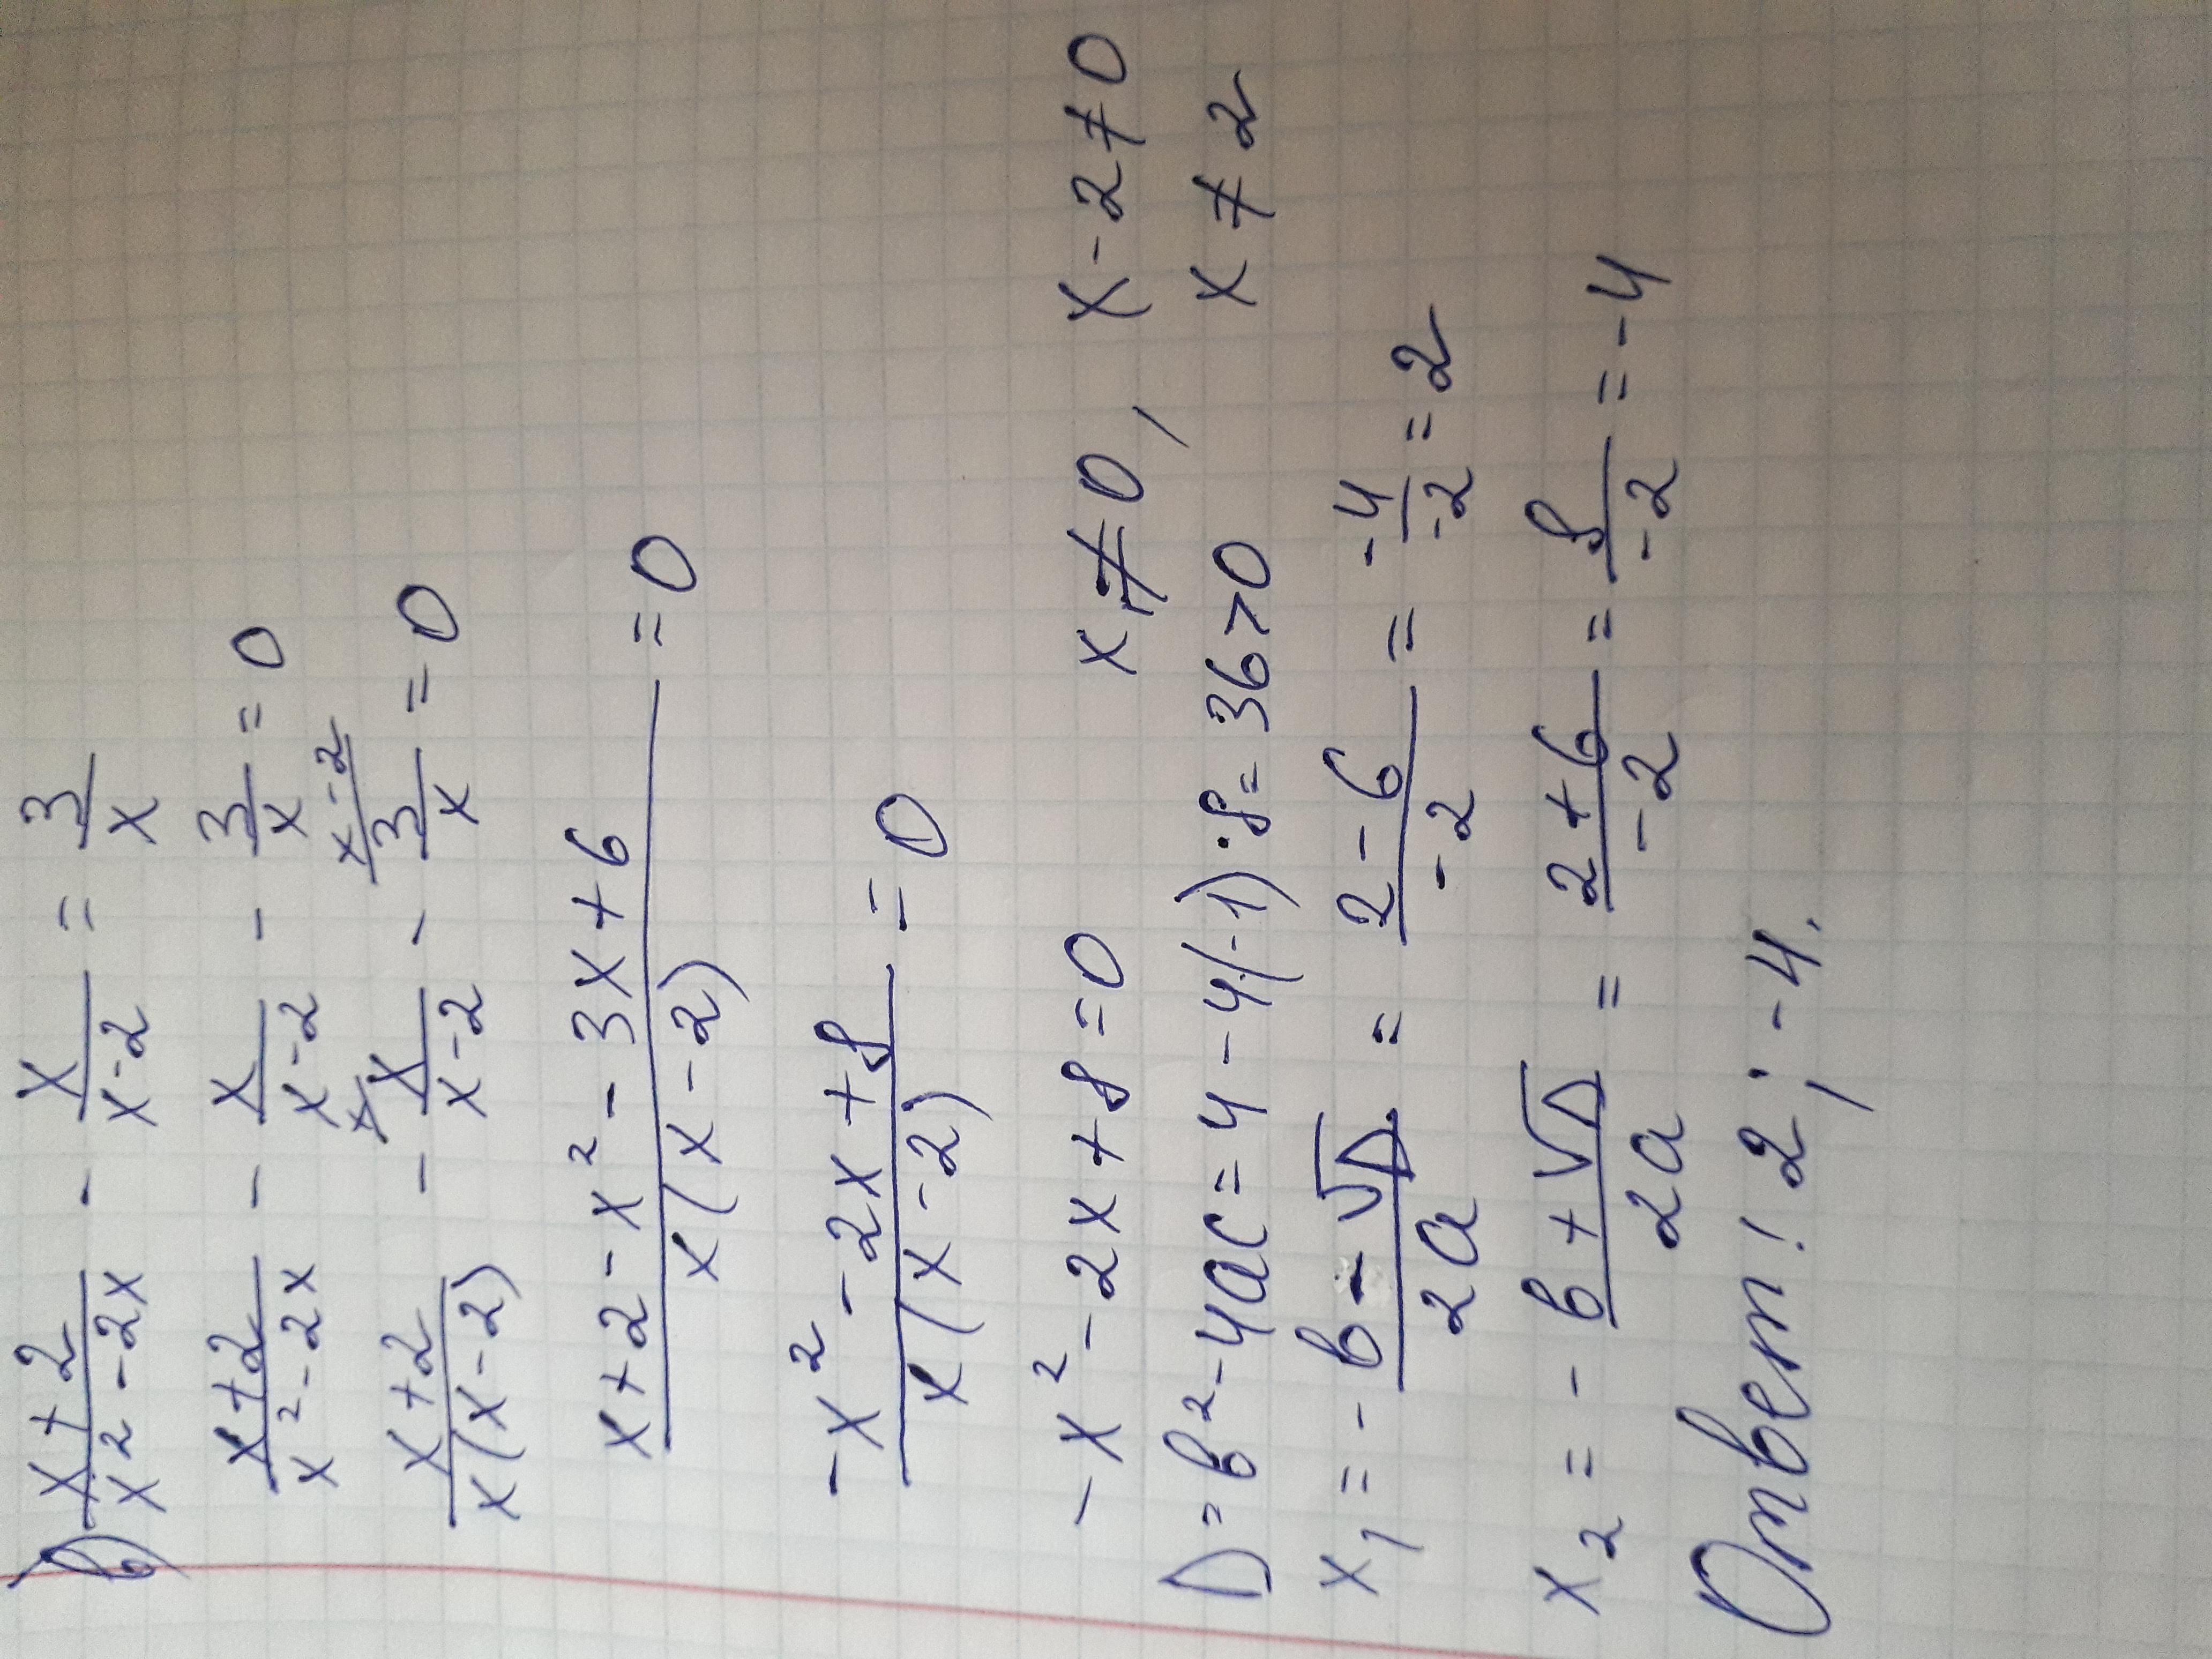 в) (x+2)/(x²-2x) - x/(x-2) = 3/x
(x+2)/(x²-2x) - x/(x-2) - 3/x = 0
(x+2)/(x(x-2)) - x/(x-2) ^x - 3/x ^x-2 = 0
(x+2-x²-3x+6)/(x(x-2)) = 0
(-x²-2x+8)/(x(x-2)) = 0
-x²-2x+8=0 x≠0, x-2≠0
D=b²-4ac=4-4(-1)·8=36>0 x≠2
x₁ = -(b-√D)/(2a) = (2-6)/(-2) = (-4)/(-2) = 2
x₂ = -(b+√D)/(2a) = (2+6)/(-2) = 8/(-2) = -4
Ответ! 2; -4.